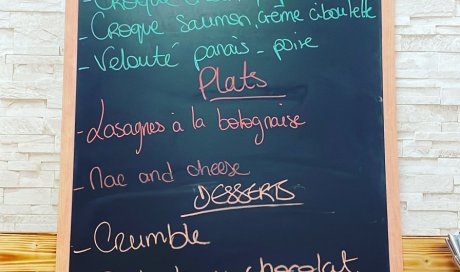 - Croque
- Croque Saumon, crème ciboulette
- Velouté panais - poire
Plats
- Lasagnes à la bolognaise
- Mac and cheese
DESSERTS
- Crumble
chocolat